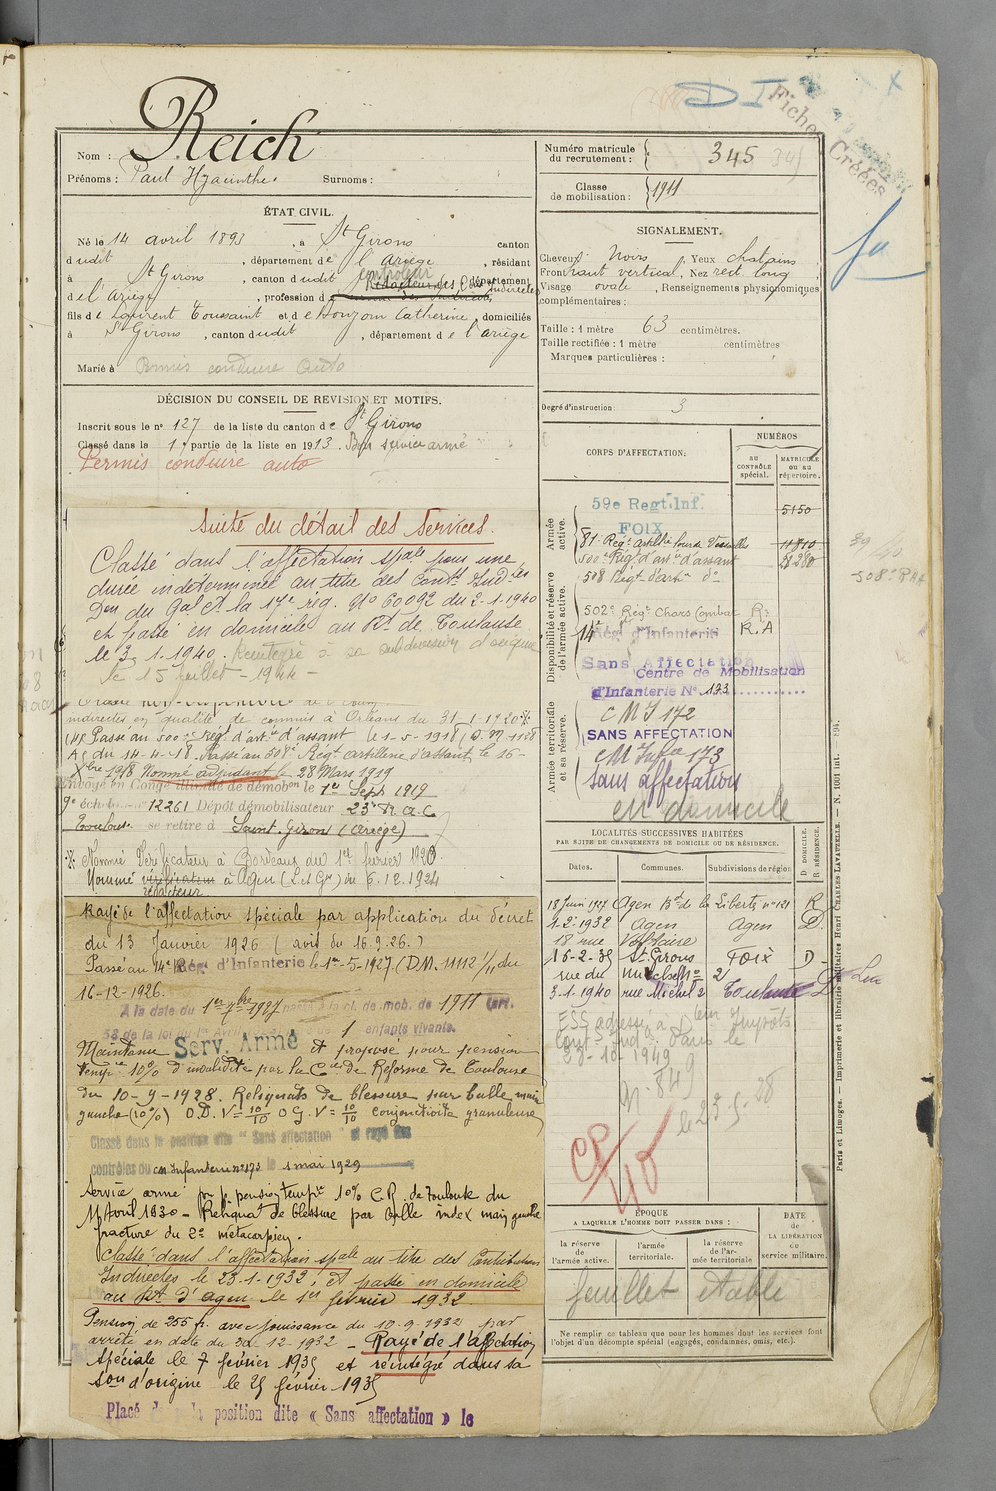 D I
Fiches Créées
Nom : Reich
Prénoms : Paul Hyacinthe. Surnoms :
Numéro matricule du recrutement : 345
Classe de mobilisation : 1911
ÉTAT CIVIL.
Né le 14 avril 1893, à St Girons canton
dudit, département de l'Ariège, résidant
à St Girons, canton dudit, département
de l'Ariège, profession de Contrôleur Rédacteur des Ctions Indirectes
fils de Laurent Toussaint et de Soujon Catherine, domiciliés
à St Girons, canton dudit, département de l'Ariège
Marié à Permis conduire auto
SIGNALEMENT.
Cheveux Noirs, Yeux chatains
Front haut vertical, Nez rect. long
Visage ovale, Renseignements physionomiques
complémentaires :
Taille : 1 mètre 63 centimètres.
Taille rectifiée : 1 mètre centimètres
Marques particulières :
Degré d'instruction : 3
DÉCISION DU CONSEIL DE REVISION ET MOTIFS.
Inscrit sous le no 127 de la liste du canton de St Girons
Classé dans la 1e partie de la liste en 1913 Bon service armé
Permis conduire auto
Suite du détail des Services.
Classé dans l'affectation spale pour une
durée indéterminée au titre des Contons Indres
Don du Gal Ct la 17e rég. No 60092 du 2-1-1940
et passé en domicile au Rt de Toulouse
le 3-1-1940. Réintégré à sa subdivision d'origine
le 15 juillet - 1944 -
indirectes en qualité de commis à Orléans du 31-1-1920
Passé au 500e Régt d'artie d'assaut le 1-5-1918 (D.M. 1128
du 14-4-18. Passé au 508e Régt artillerie d'assaut le 16-
Xbre 1918 Nommé adjudant le 28 Mars 1919
Envoyé en Congé illimité de démobon le 1er Sept 1919
9e échelon no 12261 Dépôt démobilisateur 23e R.A.C
Toulouse se retire à Saint-Giron (Ariège)
Nommé Vérificateur à Bordeaux du 1er février 1920
Nommé vérificateur à Agen (L et Gne) du 6.12.1924
rédacteur
Rayé de l'affectation spéciale par application du décret
du 13 Janvier 1926 (avis du 16.9.26.)
Passé au 14e Rég. d'Infanterie le 1er-5-1927 (D.M. 11112/11 du
16-12-1926.
A la date du 1er 7bre 1927 passé à la cl. de mob. de 1911 (art.
58 de la loi du 1er Avril 1 enfants vivants.
Maintenu Serv. Armé et proposé pour pension
tempre 10% d'invalidité par la Con de Réforme de Toulouse
du 10-9-1928. Reliquats de blessure par balle main
gauche (10%) O.D. V=10/10 O G. V=10/10 conjonctivite granuleuse
Classé dans la position dite "Sans affectation" et rayé des
contrôles du CM Infanterie no 173 le 1 mai 1929
Service armé pr pension tempre 10% C.R. de Toulouse du
11 Avril 1930 - Reliquat de blessure par balle index main gauche
fracture du 2e métacarpien.
Classé dans l'affectation spale au titre des Contributions
Indirectes le 23-1-1932, et passé en domicile
au Rt d'Agen le 1er février 1932.
Pension de 255 fr. avec jouissance du 10-9-1932 par
arrêté en date du 20-12-1932 - Rayé de l'affectation
spéciale le 7 février 1935 et réintégré dans sa
son d'origine le 25 février 1935
Placé dans la position dite « Sans affectation » le
CORPS D'AFFECTATION:
NUMÉROS
AU CONTRÔLE spécial.
MATRICULE ou au répertoire.
Armée active.
59e Regt. Inf. FOIX 5150
81e Régt Artillerie lourde Versailles 11810
500e Régt d'artie d'assaut
508 Régt d'artie do
508e RAA
Disponibilité et réserve de l'armée active.
502e Régt Chars Combat Re
14e Rég. d'Infanterie R.A
Sans Affectation
Centre de Mobilisation
d'Infanterie No 173
Armée territoriale et sa réserve.
CMI 172
SANS AFFECTATION
CM Infie 173
Sans affectation
en domicile
LOCALITÉS SUCCESSIVES HABITÉES
PAR SUITE DE CHANGEMENTS DE DOMICILE OU DE RÉSIDENCE.
Dates. Communes. Subdivisions de région D DOMICILE. R RÉSIDENCE.
18 Juin 1927 Agen Bd de la Liberté no 121 R
1-2-1932 Agen Agen D.
18 rue Voltaire
15-2-35 St Girons FOIX D
rue du
3-1-1940 rue Michel 2 Toulouse D
ESS adressé à Impôts
Cont. Ind. Paris le
27-10-1949
CP/40
ÉPOQUE
A LAQUELLE L'HOMME DOIT PASSER DANS :
la réserve de l'armée active.
l'armée territoriale.
la réserve de l'armée territoriale
DATE de LA LIBÉRATION du service militaire.
feuillet etable
Ne remplir ce tableau que pour les hommes dont les services font
l'objet d'un décompte spécial (engagés, condamnés, omis, etc.).
Paris et Limoges. — Imprimerie et librairie militaires Henri CHARLES-LAVAUZELLE. — N. 1001 int.